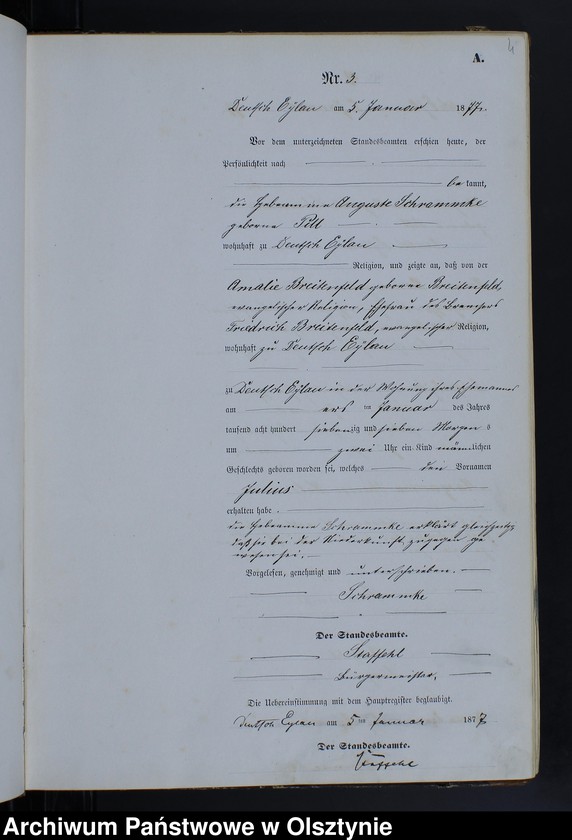 A.
Nr. 3.
Deutsch Eylau am 5. Januar 1877.
Vor dem unterzeichneten Standesbeamten erschien heute, der
Persönlichkeit nach
be kannt,
die Hebamme Auguste Schrammke
geborne Pill
wohnhaft zu Deutsch Eylau
Religion, und zeigte an, daß von der
Amalie Breitenfeld geborne Breitenfeld,
evangelischer Religion, Ehefrau des
Friedrich Breitenfeld, evangelischer Religion,
wohnhaft zu Deutsch Eylau
zu Deutsch Eylau in der Wohnung ihres Ehemannes
am ten Januar des Jahres
tausend acht hundert siebenzig und sieben Morgen s
um zwei Uhr ein Kind männlichen
Geschlechts geboren worden sei, welches den Vornamen
Julius
erhalten habe.
die Hebamme Schrammke erklärt gleichzeitig
daß sie bei der Niederkunft zugegen ge
wesen sei.
Vorgelesen, genehmigt und unterschrieben.
Schrammke
Der Standesbeamte.
Staffehl
Bürgermeister.
Die Uebereinstimmung mit dem Hauptregister beglaubigt.
Deutsch Eylau am 5ten Januar 1877
Der Standesbeamte.
Staffehl
Archiwum Państwowe w Olsztynie